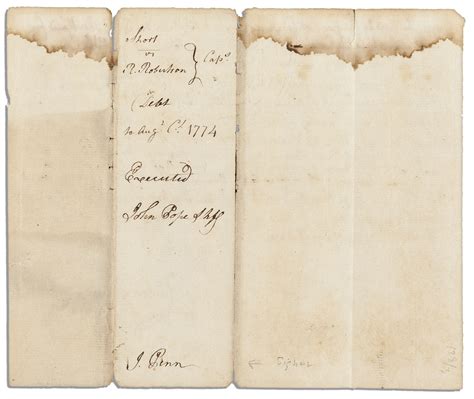 Short
vs
R. Robertson } Capˢ
Debt
to Augᵗ Cᵗ 1774
Executed
John Pope
J. Penn